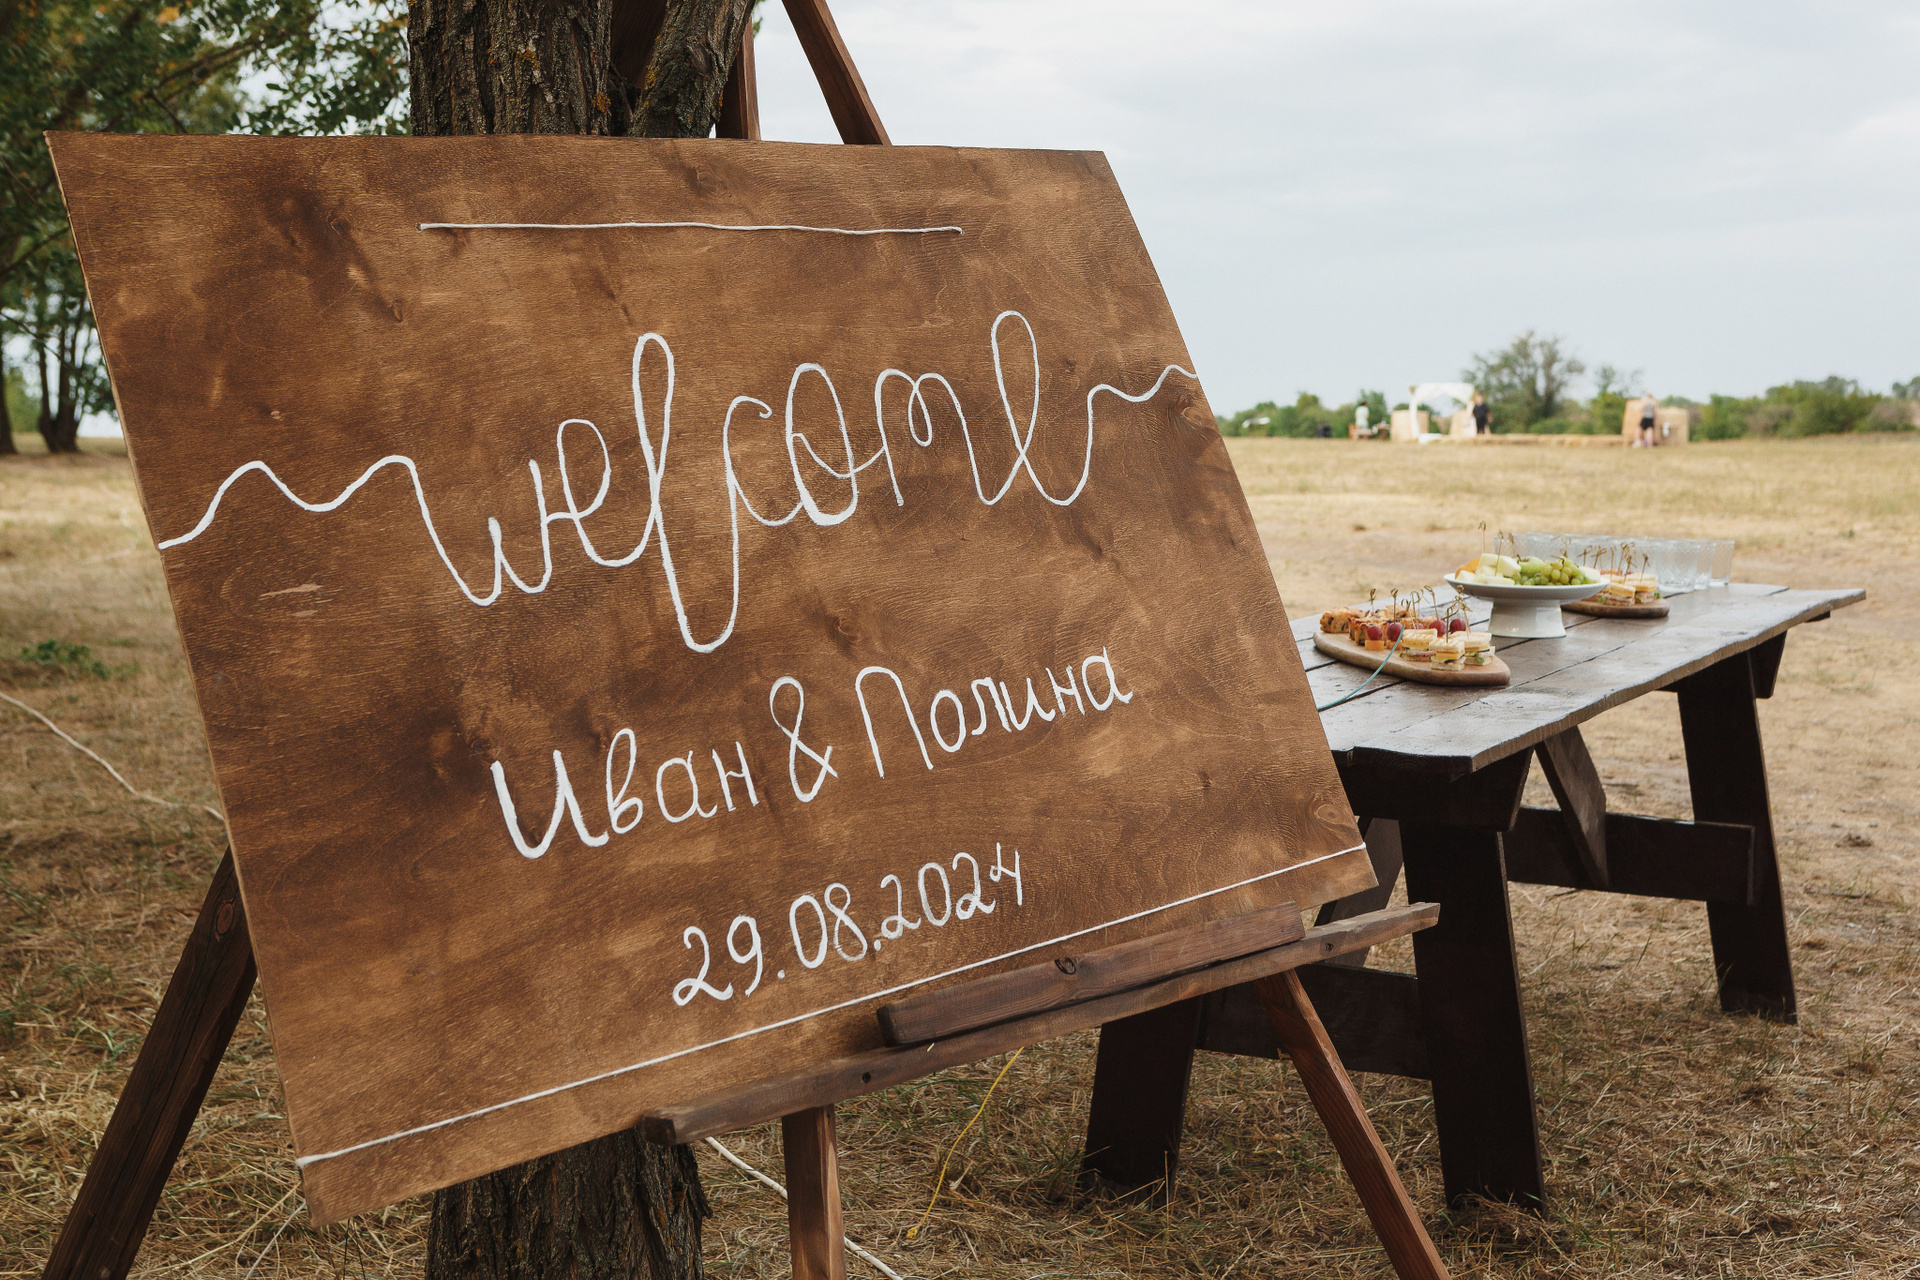 welcome
Иван & Полина
29.08.2024